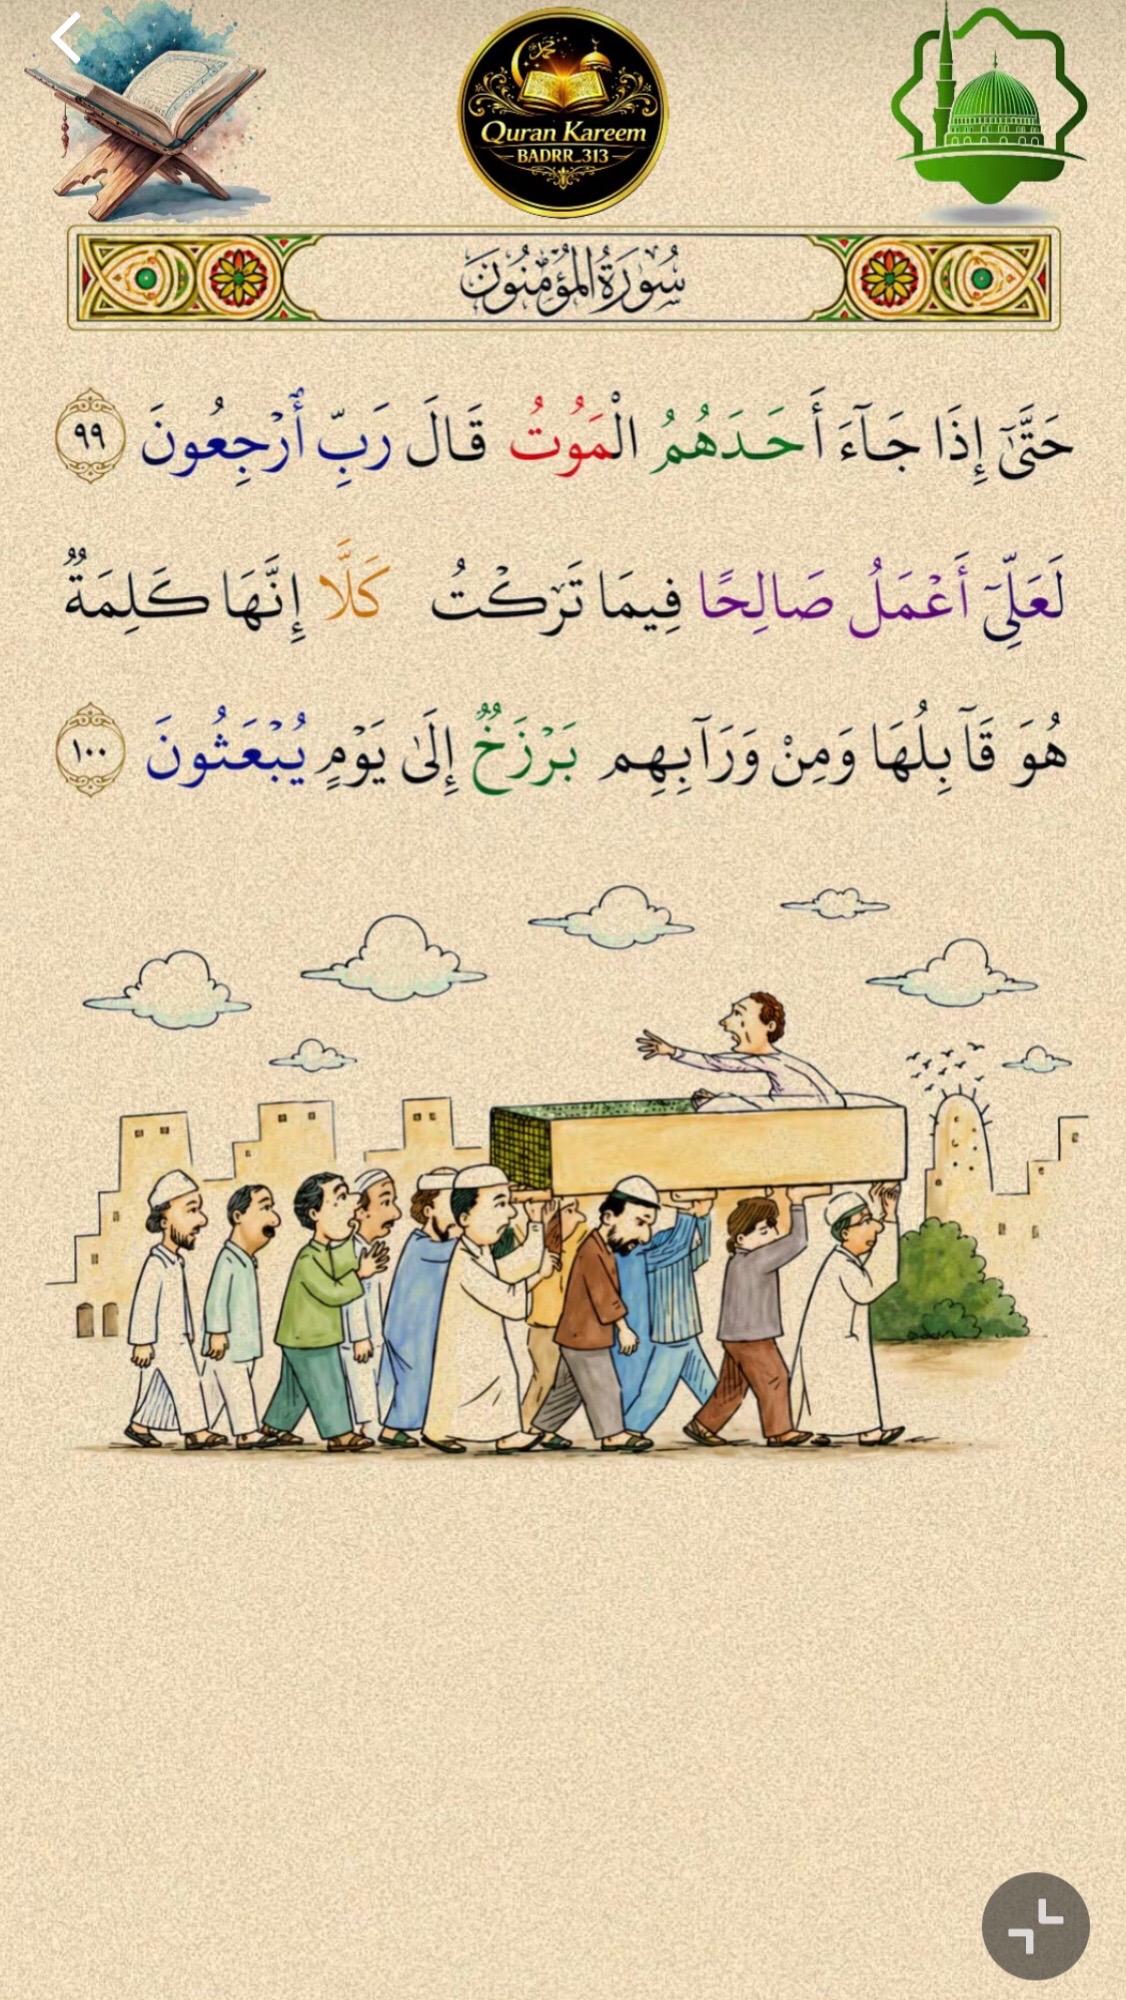 Quran Kareem
BADRR_313
سُورَةُ المُؤْمِنُونَ
حَتَّىٰٓ إِذَا جَآءَ أَحَدَهُمُ الْمَوْتُ قَالَ رَبِّ ٱرْجِعُونَ ٩٩
لَعَلِّىٓ أَعْمَلُ صَالِحًا فِيمَا تَرَكْتُ كَلَّا إِنَّهَا كَلِمَةٌ
هُوَ قَآئِلُهَا وَمِنْ وَرَآئِهِم بَرْزَخٌ إِلَىٰ يَوْمٍ يُبْعَثُونَ ١٠٠